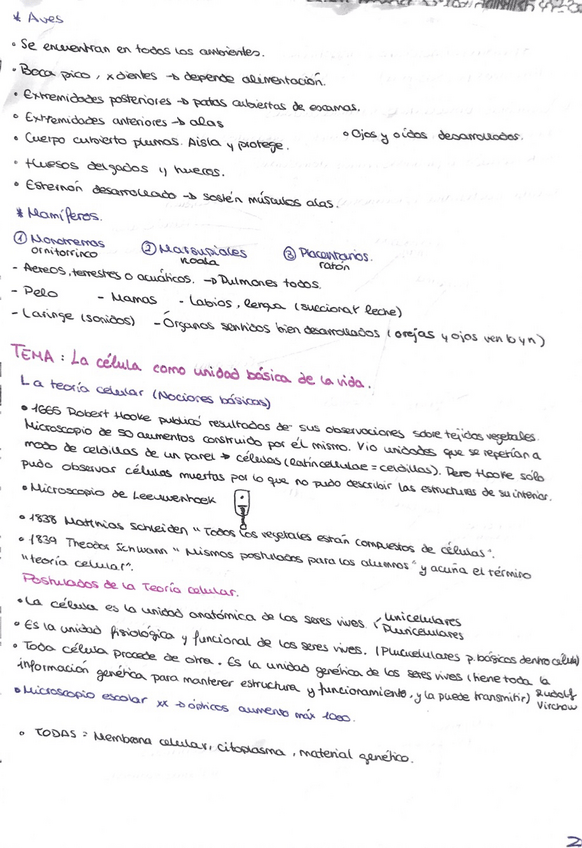 * Aves
• Se encuentran en todos los ambientes.
• Boca pico, x dientes → depende alimentación.
• Extremidades posteriores → patas cubiertas de escamas.
• Extremidades anteriores → alas
• Ojos y oídos desarrollados.
• Cuerpo cubierto plumas. Aisla y protege.
• Huesos delgados y huecos.
• Esternón desarrollado → sostén músculos alas.
* Mamíferos.
① Monotremas ② Marsupiales ③ Placentarios.
ornitorrinco koala ratón
- Aereos, terrestres o acuáticos. → Pulmones todos.
- Pelo - Mamas - Labios, lengua (succionar leche)
- Laringe (sonidos) - Órganos sentidos bien desarrollados (orejas y ojos ven b y n)
TEMA: La célula como unidad básica de la vida.
La teoría celular (Nociones básicas)
• 1665 Robert Hooke publicó resultados de sus observaciones sobre tejidos vegetales.
Microscopio de 50 aumentos construido por él mismo. Vio unidades que se repetían a
modo de celdillas de un panel → células (latín cellulae = celdillas). Pero Hooke sólo
pudo observar células muertas por lo que no pudo describir las estructuras de su interior.
• Microscopio de Leeuwenhoek
• 1838 Matthias Schleiden "Todos los vegetales están compuestos de células".
• 1839 Theodor Schwann "Mismos postulados para los alumnos" y acuña el término
"teoría celular".
Postulados de la Teoría celular.
• La célula es la unidad anatómica de los seres vivos. Unicelulares
Pluricelulares
• Es la unidad fisiológica y funcional de los seres vivos. (p. básicos dentro célula)
• Toda célula procede de otra. Es la unidad genética de los seres vivos (tiene toda la
información genética para mantener estructura y funcionamiento, y la puede transmitir) Rudolf
Virchow
• Microscopio escolar xx → ópticos aumento máx 1000.
• TODAS = Membrana celular, citoplasma, material genético.
2